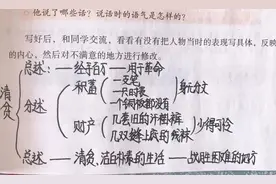 他说了哪些话？说话时的语气是怎样的？
写好后，和同学交流，看看有没有把人物当时的表现写具体，反映
的内心，然后对不满意的地方进行修改。
清贫
总述：——经手百万——用于革命
分述
积蓄
一支笔
一只时表
一个铜板都没有
身无分文
财产
几套旧的汗褂裤
几双缝上底的线袜
少得可怜
总述——清贫、洁白朴素的生活——战胜困难的